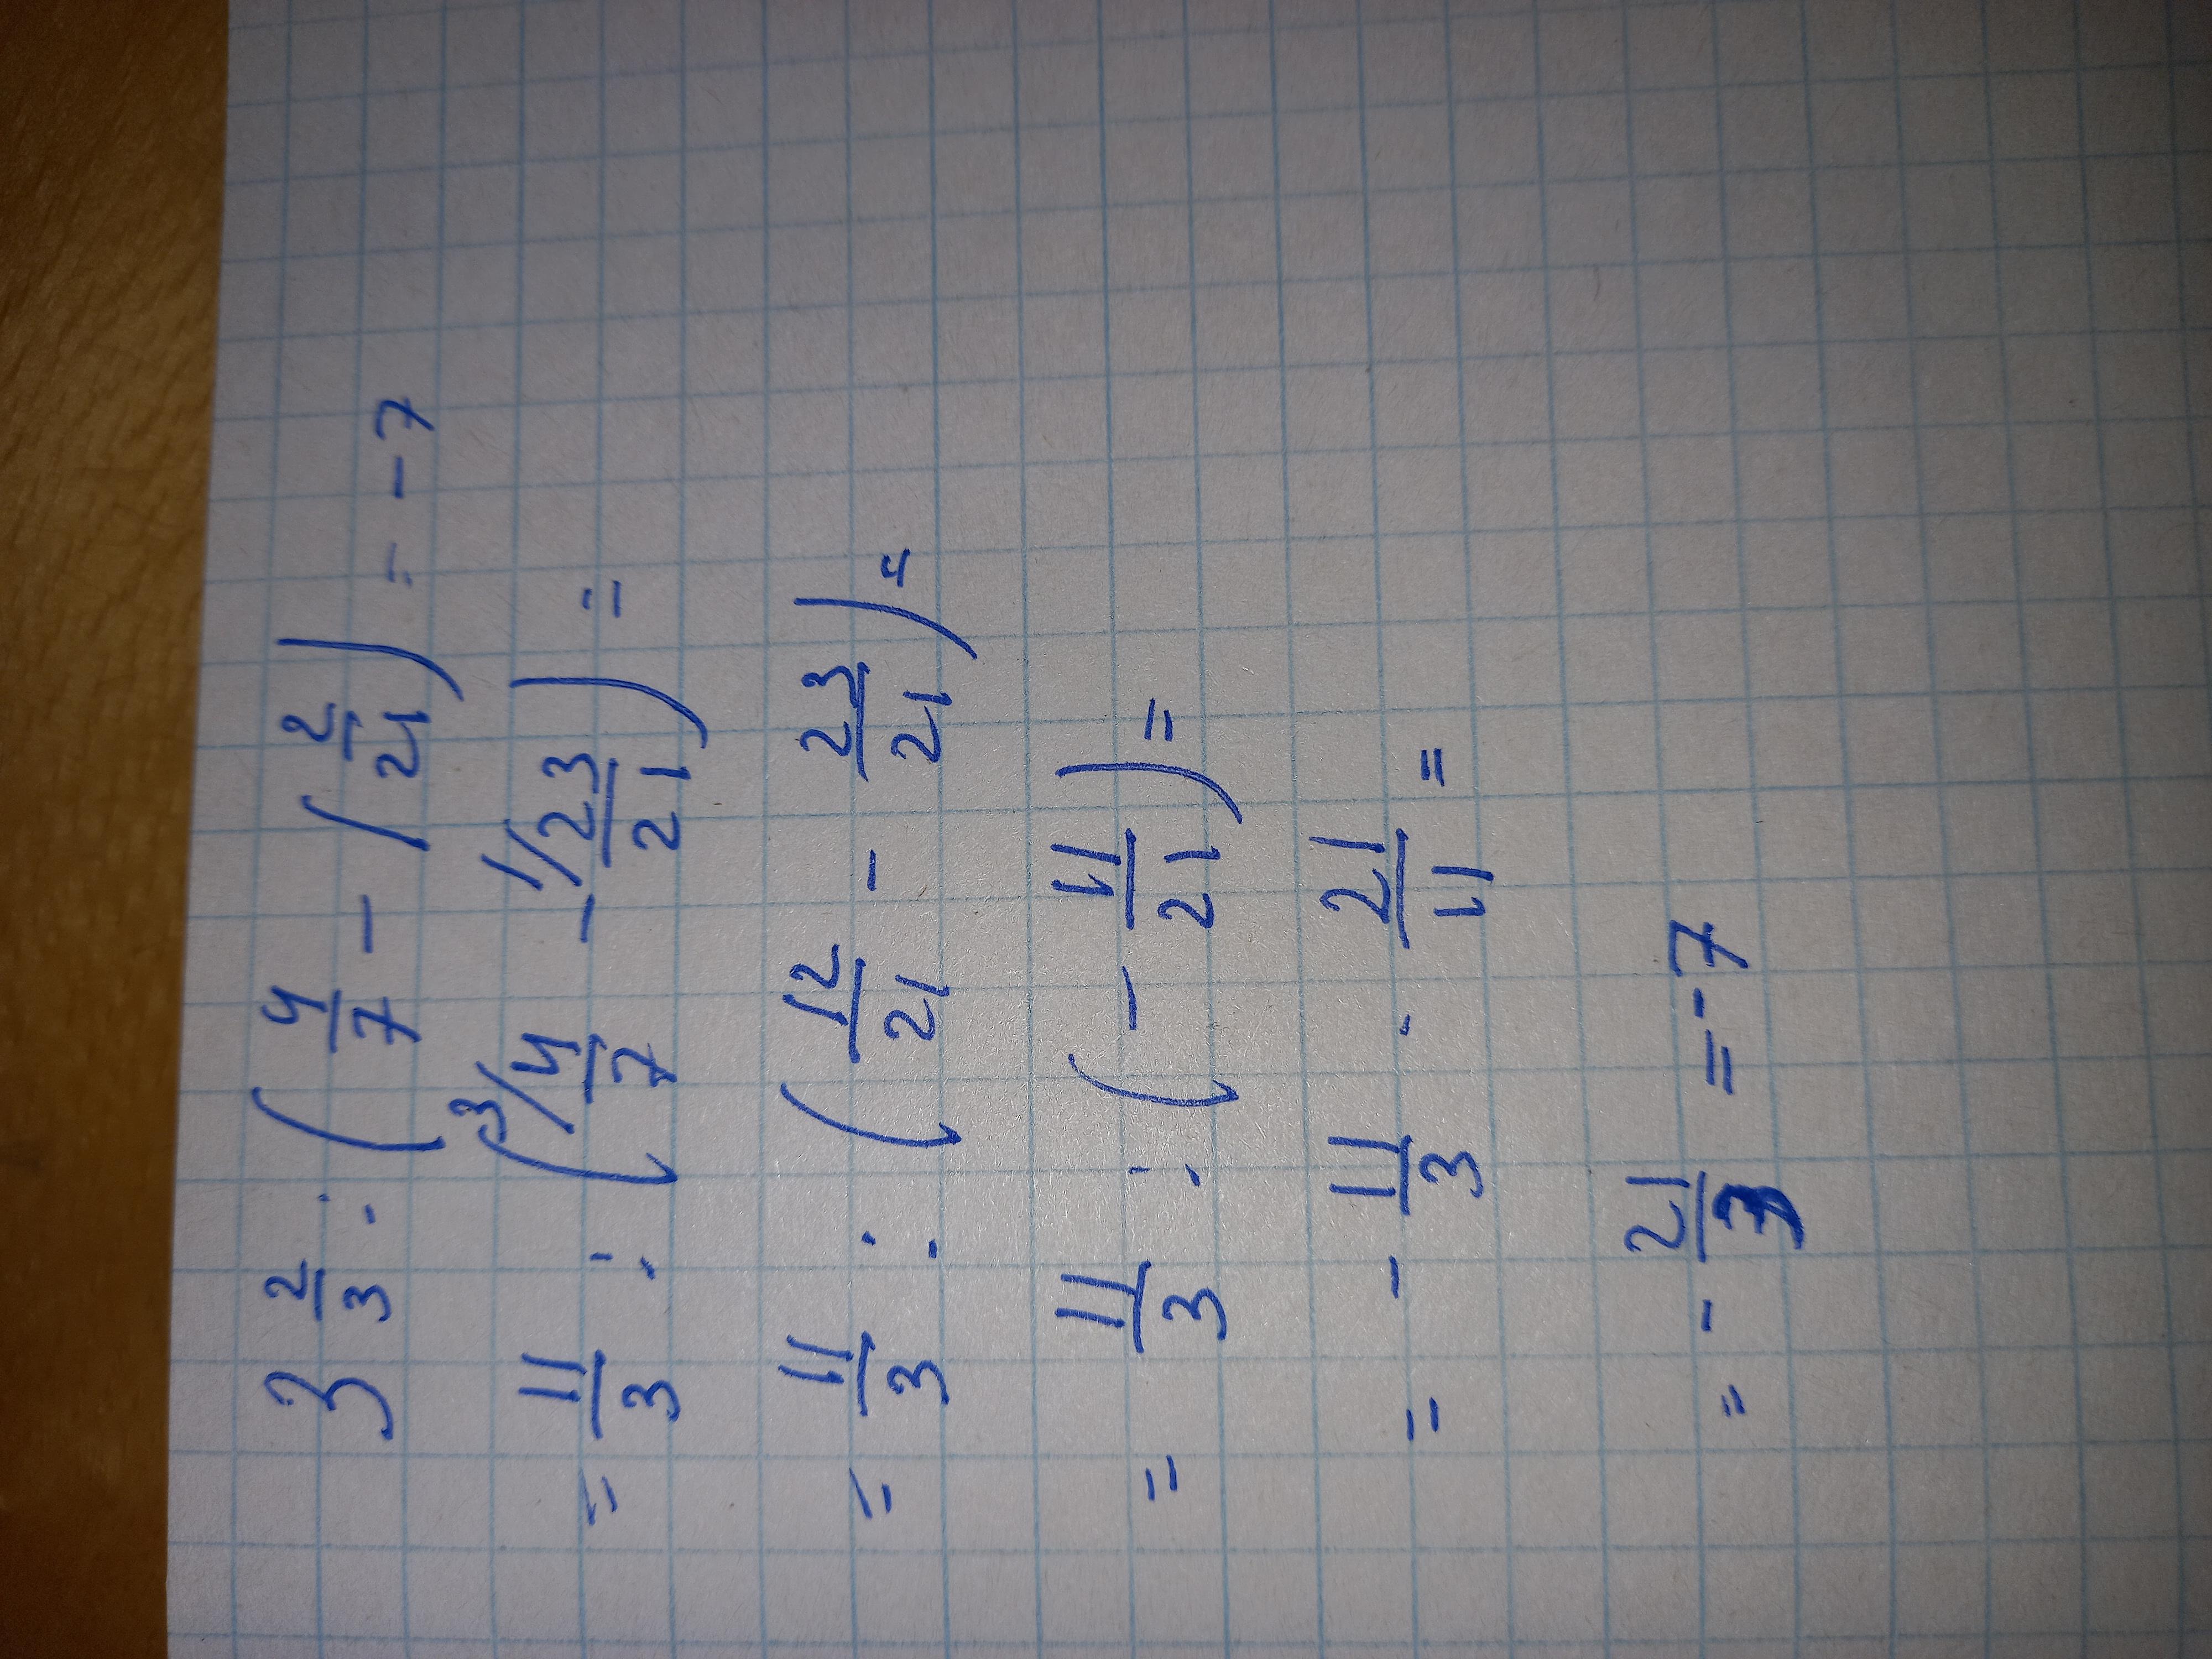 3 2/3 : (4/7 - 1 2/21) = -7
= 11/3 : (3/ 4/7 - 1/ 23/21) =
= 11/3 : (12/21 - 23/21) =
= 11/3 : (- 11/21) =
= - 11/3 · 21/11 =
= - 21/3 = -7